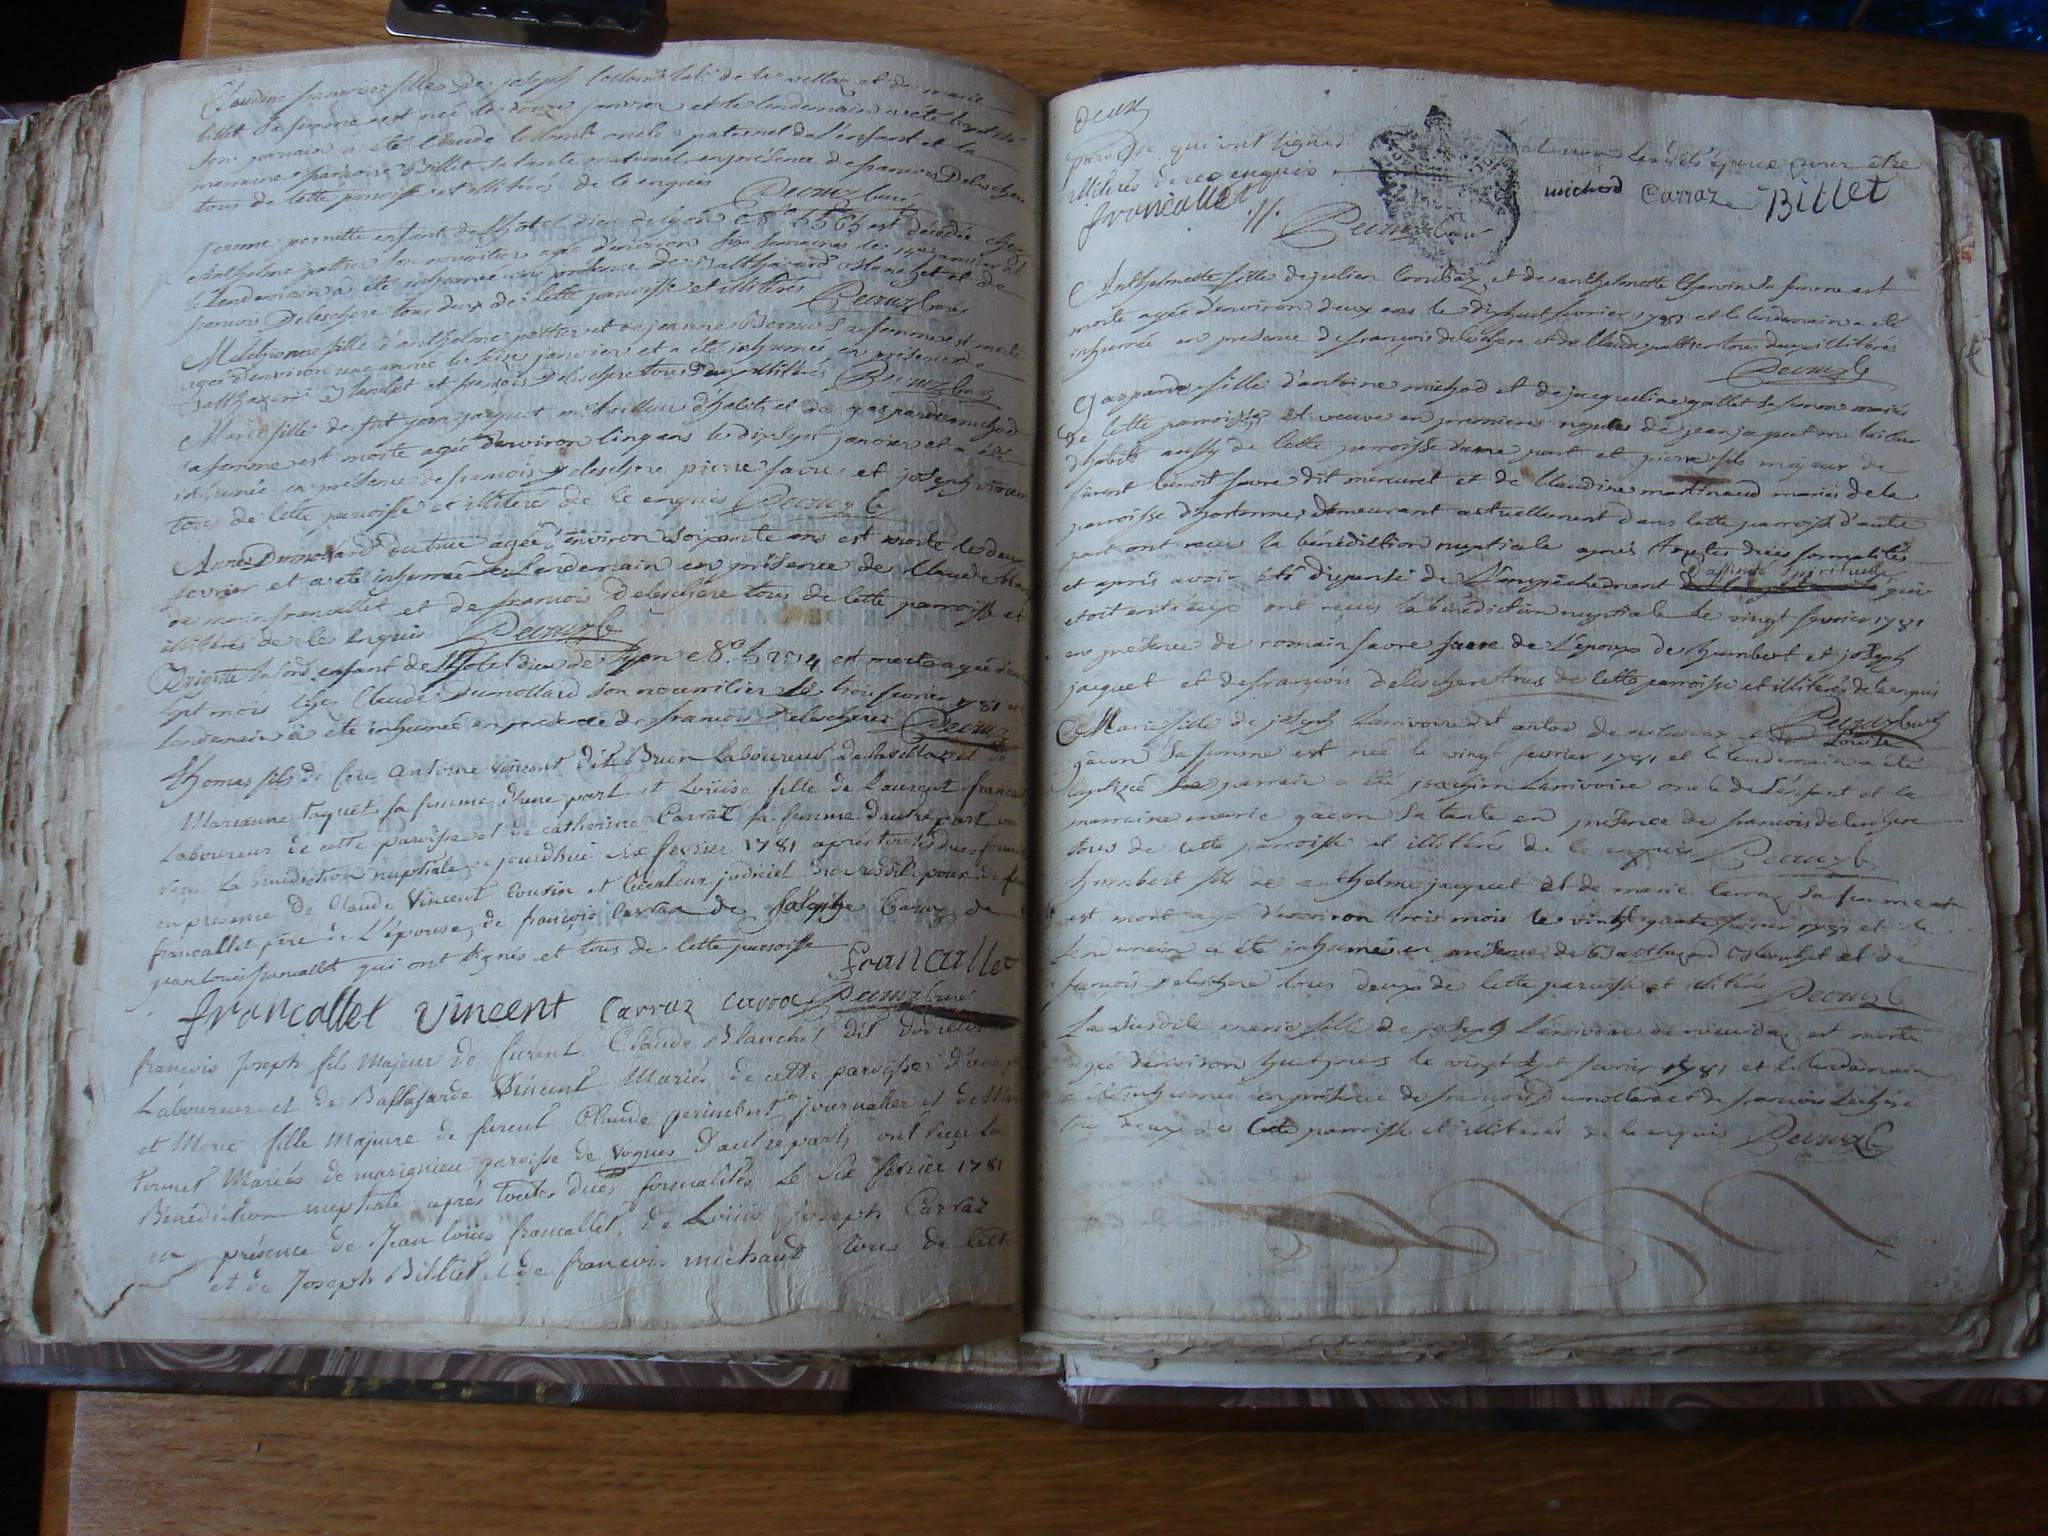 Claudine françoise fille de joseph Collomb lab.r de la vellaz et de marie
billet sa femme est née le douze janvier et le lendemain a été baptisée
son parrain a été Claude Collomb oncle paternel de l'enfant et la
marraine françoise Billet sa tante maternel en présence de françois Deleschere
tous de cette paroisse et illiterés de ce enquis Decruz curé
jeanne pernette enfant de l'hotel dieu de lyon c 8.e 5565 est décédée chez
anthelme pattier son nourritier agée d'environ six semaines le janvier et
le lendemain a été inhumée en présence de Balthazard Blanchet et de
francois Deleschere tous deux de cette paroisse et illiterés Decruz curé
Melchionne fille d'anthelme pattier et de jeanne Bernu sa femme est morte
agée d'environ une année le seize janvier et a été inhumée en présence de
Balthazard Blanchet et françois Deleschere tous deux illiterés Decruz curé
Marie fille de fut jean jacquet me tailleur d'habits et de gasparde michod
sa femme est morte agée d'environ cinq ans le dix sept janvier et a été
inhumée en présence de francois Deleschere pierre favre et joseph vincent
tous de cette paroisse et illiterés de ce enquis Decruz C
Anne Dumollard outrée agée d'environ soixante ans est morte le deux
fevrier et a été inhumée le Lendemain en présence de Claude
de francallet et de francois Deleschere tous de cette parroisse et
illiterés de ce enquis Decruz C
Brigitte enfant de l'hotel dieu de lyon c 8.e 5294 est morte agée d'en
sept mois chez Claude Dumollard son nourritier le trois fevrier 1781 et
Lendemain a été inhumé en présence de francois Deleschere Decruz
thomas fils de feu antoine vincent dit Brun Laboureur de la vellaz et de
Marianne taquet sa femme d'une part et Loüise fille de Laurent francallet
Laboureur de cette paroisse et de catherine Carraz sa femme d'autre part ont
reçu La bénédiction nuptiale ce jourdhui six fevrier 1781 après toutes dues formal
en présence de Claude Vincent Cousin et Curateur judiciel
francallet père de L'épouse, de françois Carraz de joseph Carraz de
jean Louis francallet qui ont signés et tous de cette paroisse francallet
francallet Vincent Carraz caraz Decruz curé
francois Joseph fils Majeur de furent Claude Blanchet dit
Laboureur et de Baltasarde Vincent Mariés de cette paroisse d'une part
et Marie fille Majeure de furent Claude perinchet journalier et de Mar
tonnet Mariés de marignieu paroisse de vognes D'autre part, ont reçu La
Bénédiction nuptiale après toutes dues formalités Le six fevrier 1781
en présence de Jean loüis francallet, de Loüis joseph Carraz
et de Joseph Billiet et de francois michaud tous de cette
deux
paroisse qui ont signés et non lesdits époux pour être
illiterés de ce enquis michod Carraz Billet
francallet Decruz curé
Anthelmette fille de julien Combaz, et de anthelmette Charvin sa femme est
morte agée d'environ deux ans le dixhuit fevrier 1781 et le lendemain a été
inhumée en presence de françois deleschere et de Claude pattier tous deux illiterés
Decruz C
Gasparde fille d'antoine michod et de jacqueline gallet sa femme mariés
de cette parroisse et veuve en premieres nopces de jean jaquet me tailleur
d'habits aussy de cette parroisse d'une part et pierre fils majeur de
furent benoit favre dit mercuret et de Claudine martinaud mariés de la
parroisse d'hostonne, demeurant actuellement dans cette parroisse d'autre
part ont recu la bénédiction nuptiale après toutes dües formalités
et après avoir été dispensé de L'empêchement d'affinité spirituelle qui
etoit entr'eux ont reçus la bénédiction nuptiale le vingt fevrier 1781
en présence de romain favre frere de L'epoux de humbert et joseph
jacquet et de françois deleschere tous de cette parroisse et illiterés de ce enquis
Marie fille de joseph Larrivoire dit et de Louise Decruz curé
gacon sa femme est née le vingt fevrier 1781 et le lendemain a été
baptizée son parrain a été joachim Larrivoire oncle de l'enfant et la
marraine marie gacon sa tante en présence de francois deleschere
tous de cette parroisse et illiterés de ce enquis Decruz C
humbert fils de anthelme jacquet et de marie Carraz sa femme est
est mort agé d'environ trois mois le vingt quatre fevrier 1781 et le
Lendemain a été inhumé en présence de Balthazard Blanchet et de
françois deleschere tous deux de cette paroisse et illiterés Decruz C
La susdite marie fille de joseph Larrivoire est morte
agée d'environ huit jours le vingt sept fevrier 1781 et le lendemain
a été inhumée en présence de françois Dumollard et de francois Leschere
tous deux de cette parroisse et illiterés de ce enquis Decruz C